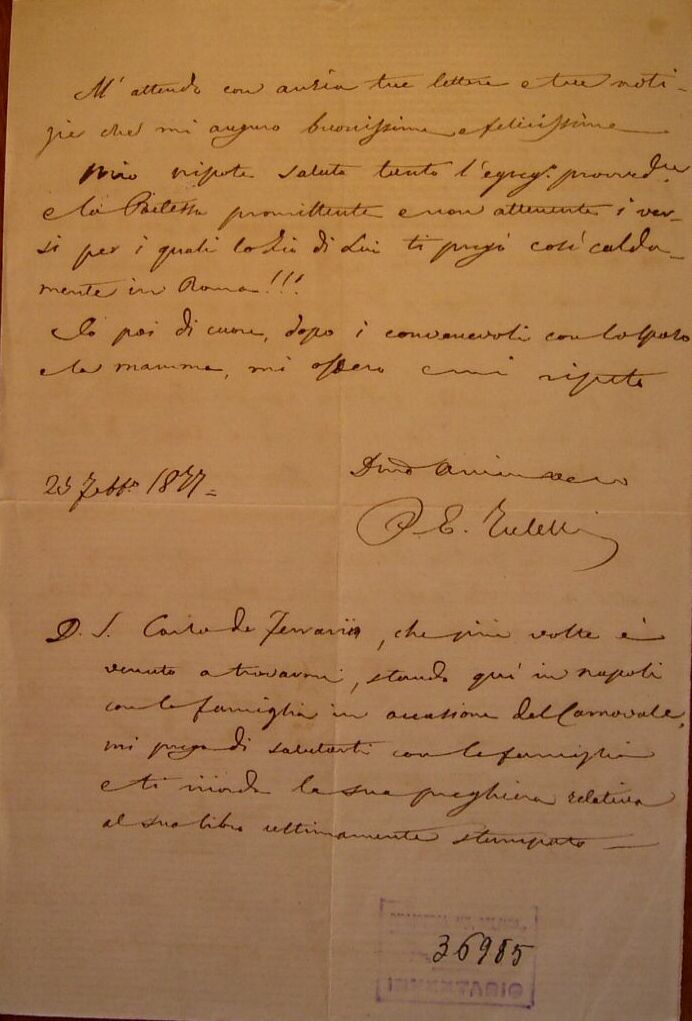 M'attendo con ansia tue lettere e tue noti-
zie che mi auguro buonissime e felicissime
Mio nipote saluta tanto l'egreg.
e la Poetessa promittente e non attenente i ver-
si per i quali lo Zio di Lui ti pregò così calda-
mente in Roma!!!
Io poi di cuore, dopo i convenevoli con lo sposo
e la mamma, mi offero e mi ripeto
23 Febb.o 1877 =
P. E.
P. S. Carlo de Ferrariis, che più volte è
venuto a trovarmi, stando quì in Napoli
con la famiglia in occasione del Carnovale,
mi prega di salutarti con la famiglia
e ti ricorda la sua preghiera relativa
al suo libro ultimamente stampato —
36985